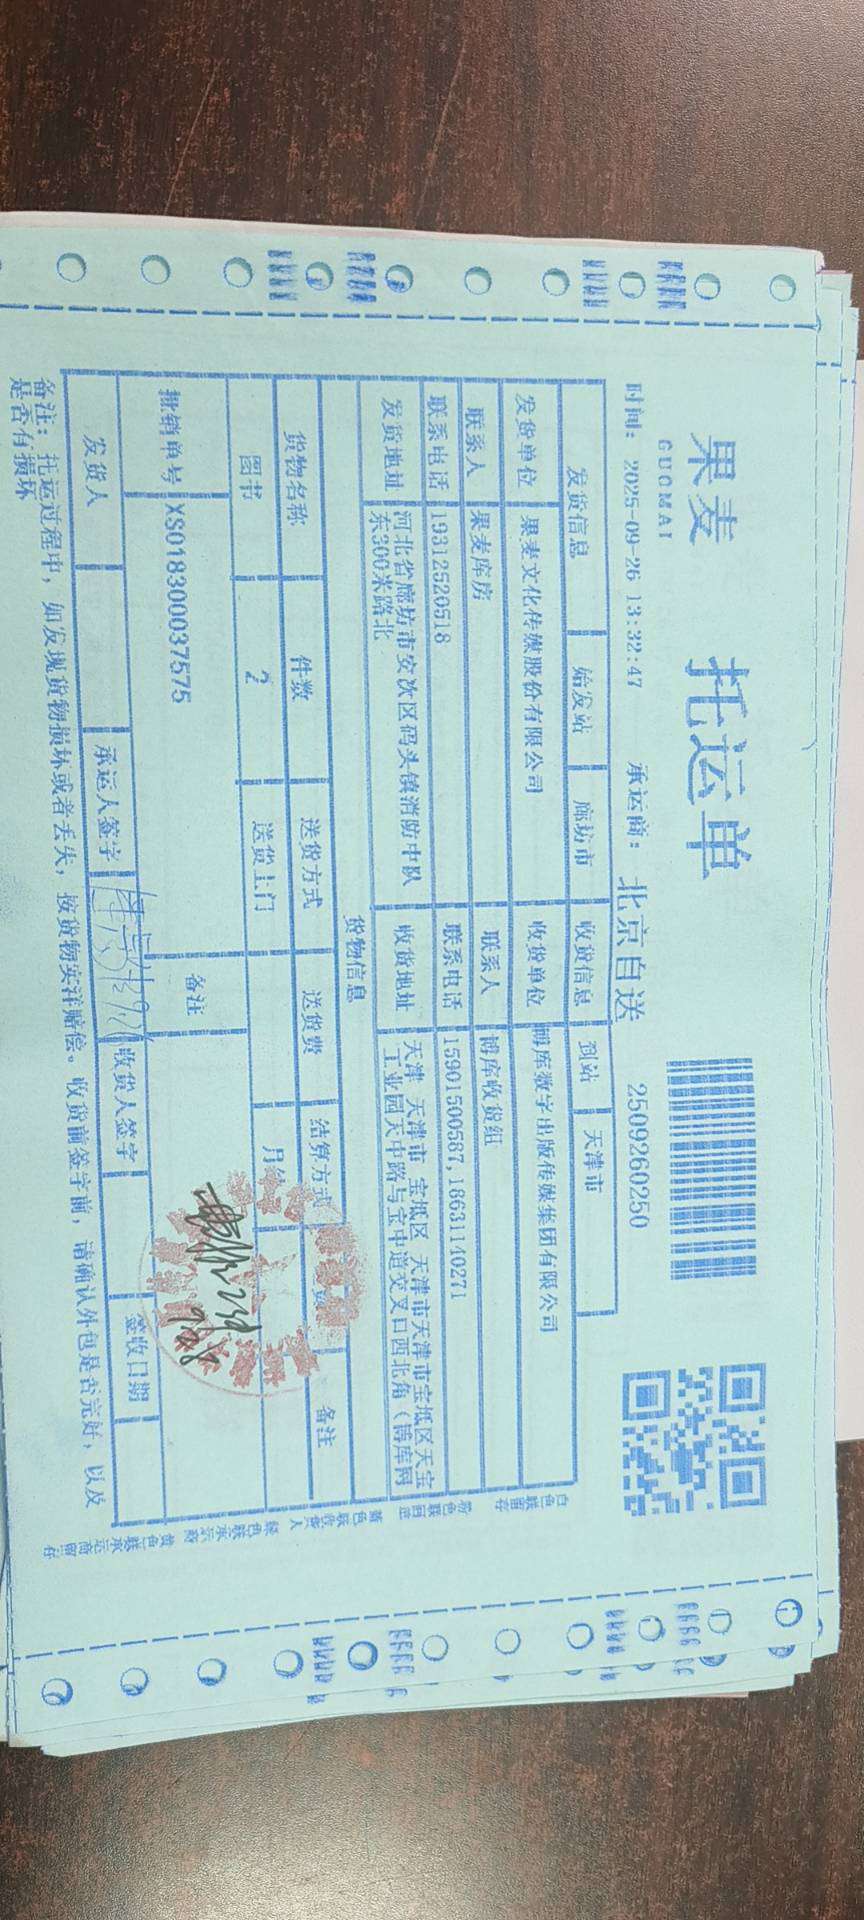 果麦 托运单
GUOMAI
时间: 2025-09-26 13:32:47 承运商: 北京自送 2509260250
发货信息 始发站 廊坊市 收货信息 到站 天津市
发货单位 果麦文化传媒股份有限公司 收货单位 博库数字出版传媒集团有限公司
联系人 果麦库房 联系人 博库收货组
联系电话 19312520518 联系电话 15901500587,18631140271
发货地址 河北省廊坊市安次区码头镇消防中队 收货地址 天津 天津市 宝坻区 天津市天津市宝坻区天宝
东300米路北 工业园天中路与宝中道交叉口西北角（博库网
货物信息
货物名称 件数 送货方式 送货费 结算方式 备注
图书 2 送货上门 月结
批销单号 XS018300037575 备注
发货人 承运人签字 收货人签字 签收日期
备注: 托运过程中，如发现货物损坏或者丢失，按货物实洋赔偿。收货前签字前，请确认外包是否完好，以及
是否有损坏
白色联留存
粉色联回单
蓝色联收货人
绿色联承运商
黄色联承运商留存